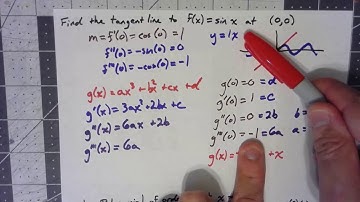 Find the tangent line to f(x) = sin x at (0,0)
m = f'(0) = cos(0) = 1
y = 1x
f''(0) = -sin(0) = 0
f'''(0) = -cos(0) = -1
g(x) = ax³ + bx² + cx + d
g(0) = 0 = d
g'(x) = 3ax² + 2bx + c
g'(0) = 1 = c
g''(x) = 6ax + 2b
g''(0) = 0 = 2b
b =
g'''(x) = 6a
g'''(0) = -1 = 6a
a =
g(x) = + x